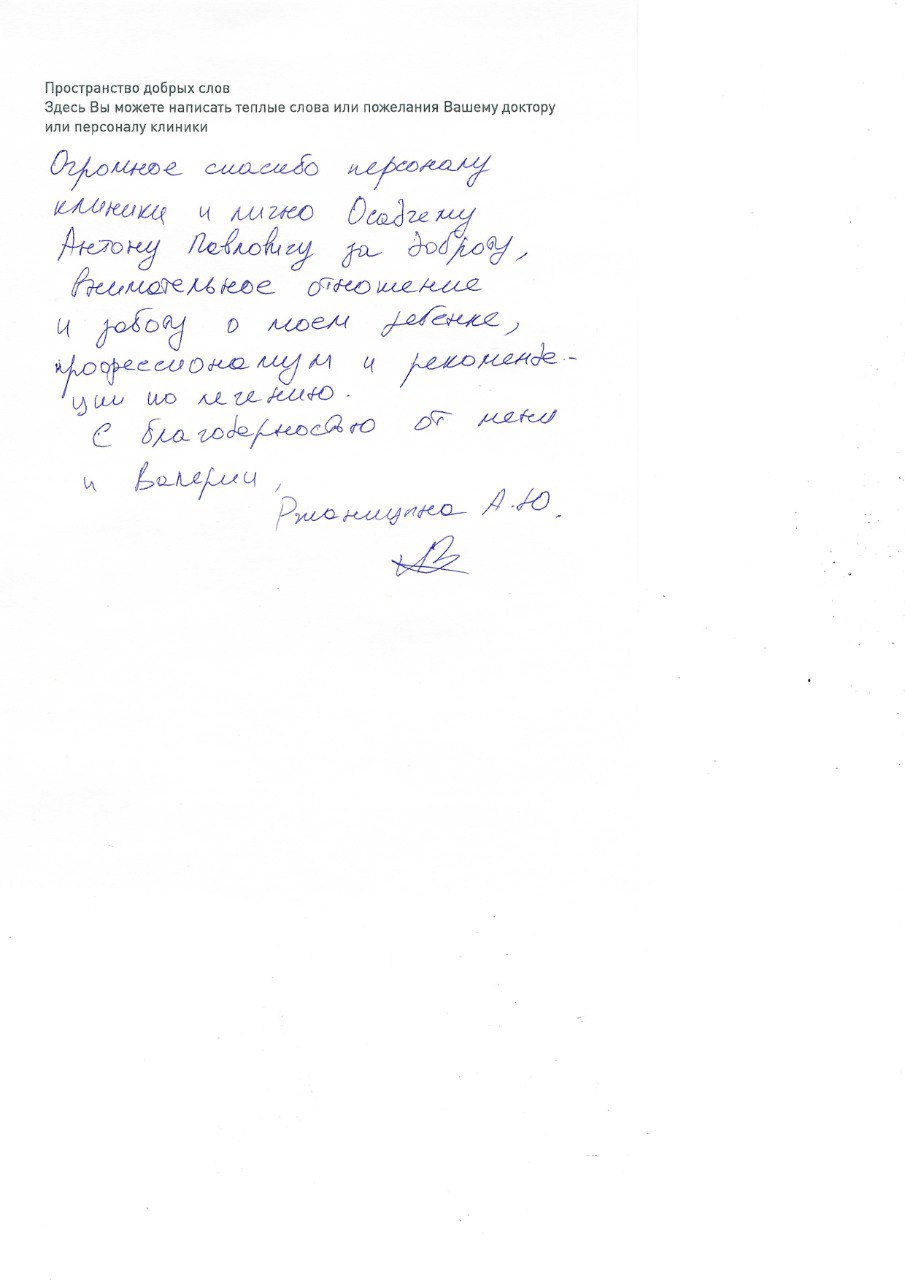 Пространство добрых слов
Здесь Вы можете написать теплые слова или пожелания Вашему доктору
или персоналу клиники
Огромное спасибо персоналу
клиники и лично Осадчему
Антону Павловичу за доброту,
внимательное отношение
и заботу о моем ребенке,
профессионализм и рекоменда-
ции по лечению.
С благодарностью от меня
и Валерии,
А.Ю.